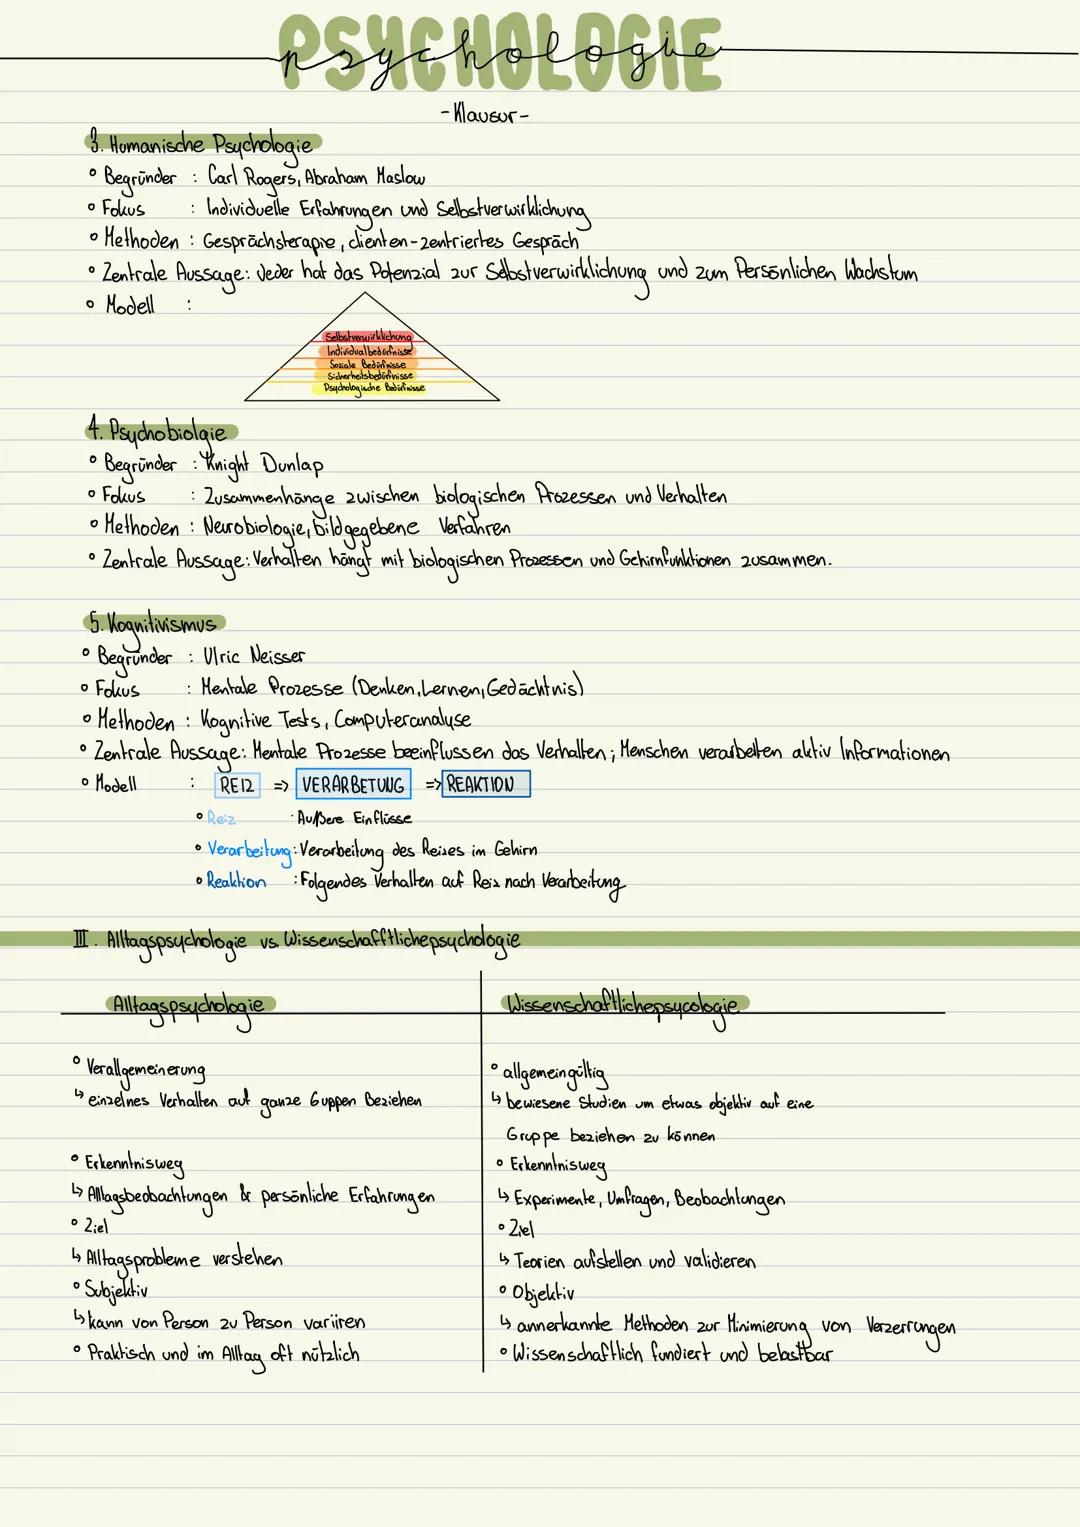 PSYCHOLOGIE
psychologie
-Klausur-
3. Humanische Psychologie
° Begründer : Carl Rogers, Abraham Maslow
° Fokus : Individuelle Erfahrungen und Selbstverwirklichung
° Methoden : Gesprächsterapie, clienten-zentriertes Gespräch
° Zentrale Aussage: Jeder hat das Potenzial zur Selbstverwirklichung und zum Persönlichen Wachstum
° Modell :
Selbstverwirklichung
Individualbedürfnisse
Soziale Bedürfnisse
Sicherheitsbedürfnisse
Psychologische Bedürfnisse
4. Psychobiolgie
° Begründer : Knight Dunlap
° Fokus : Zusammenhänge zwischen biologischen Prozessen und Verhalten
° Methoden : Neurobiologie, bildgegebene Verfahren
° Zentrale Aussage: Verhalten hängt mit biologischen Prozessen und Gehirnfunktionen zusammen.
5. Kognitivismus
° Begründer : Ulric Neisser
° Fokus : Mentale Prozesse (Denken, Lernen, Gedächtnis)
° Methoden : Kognitive Tests, Computeranalyse
° Zentrale Aussage: Mentale Prozesse beeinflussen das Verhalten; Menschen verarbeiten aktiv Informationen
° Modell : REIZ => VERARBETUNG => REAKTION
° Reiz : Außere Einflüsse
° Verarbeitung: Verarbeitung des Reizes im Gehirn
° Reaktion : Folgendes Verhalten auf Reiz nach Verarbeitung
III. Alltagspsychologie vs. Wissenschafftlichepsychologie
Alltagspsychologie
° Verallgemeinerung
↳ einzelnes Verhalten auf ganze Guppen Beziehen
° Erkenntnisweg
↳ Alltagsbeobachtungen & persönliche Erfahrungen
° Ziel
↳ Alltagsprobleme verstehen
° Subjektiv
↳ kann von Person zu Person variiren
° Praktisch und im Alltag oft nützlich
Wissenschaftlichepsycologie
° allgemeingültig
↳ bewiesene Studien um etwas objektiv auf eine
Gruppe beziehen zu können
° Erkenntnisweg
↳ Experimente, Umfragen, Beobachtungen
° Ziel
↳ Teorien aufstellen und validieren
° Objektiv
↳ annerkannte Methoden zur Minimierung von Verzerrungen
° Wissenschaftlich fundiert und belastbar